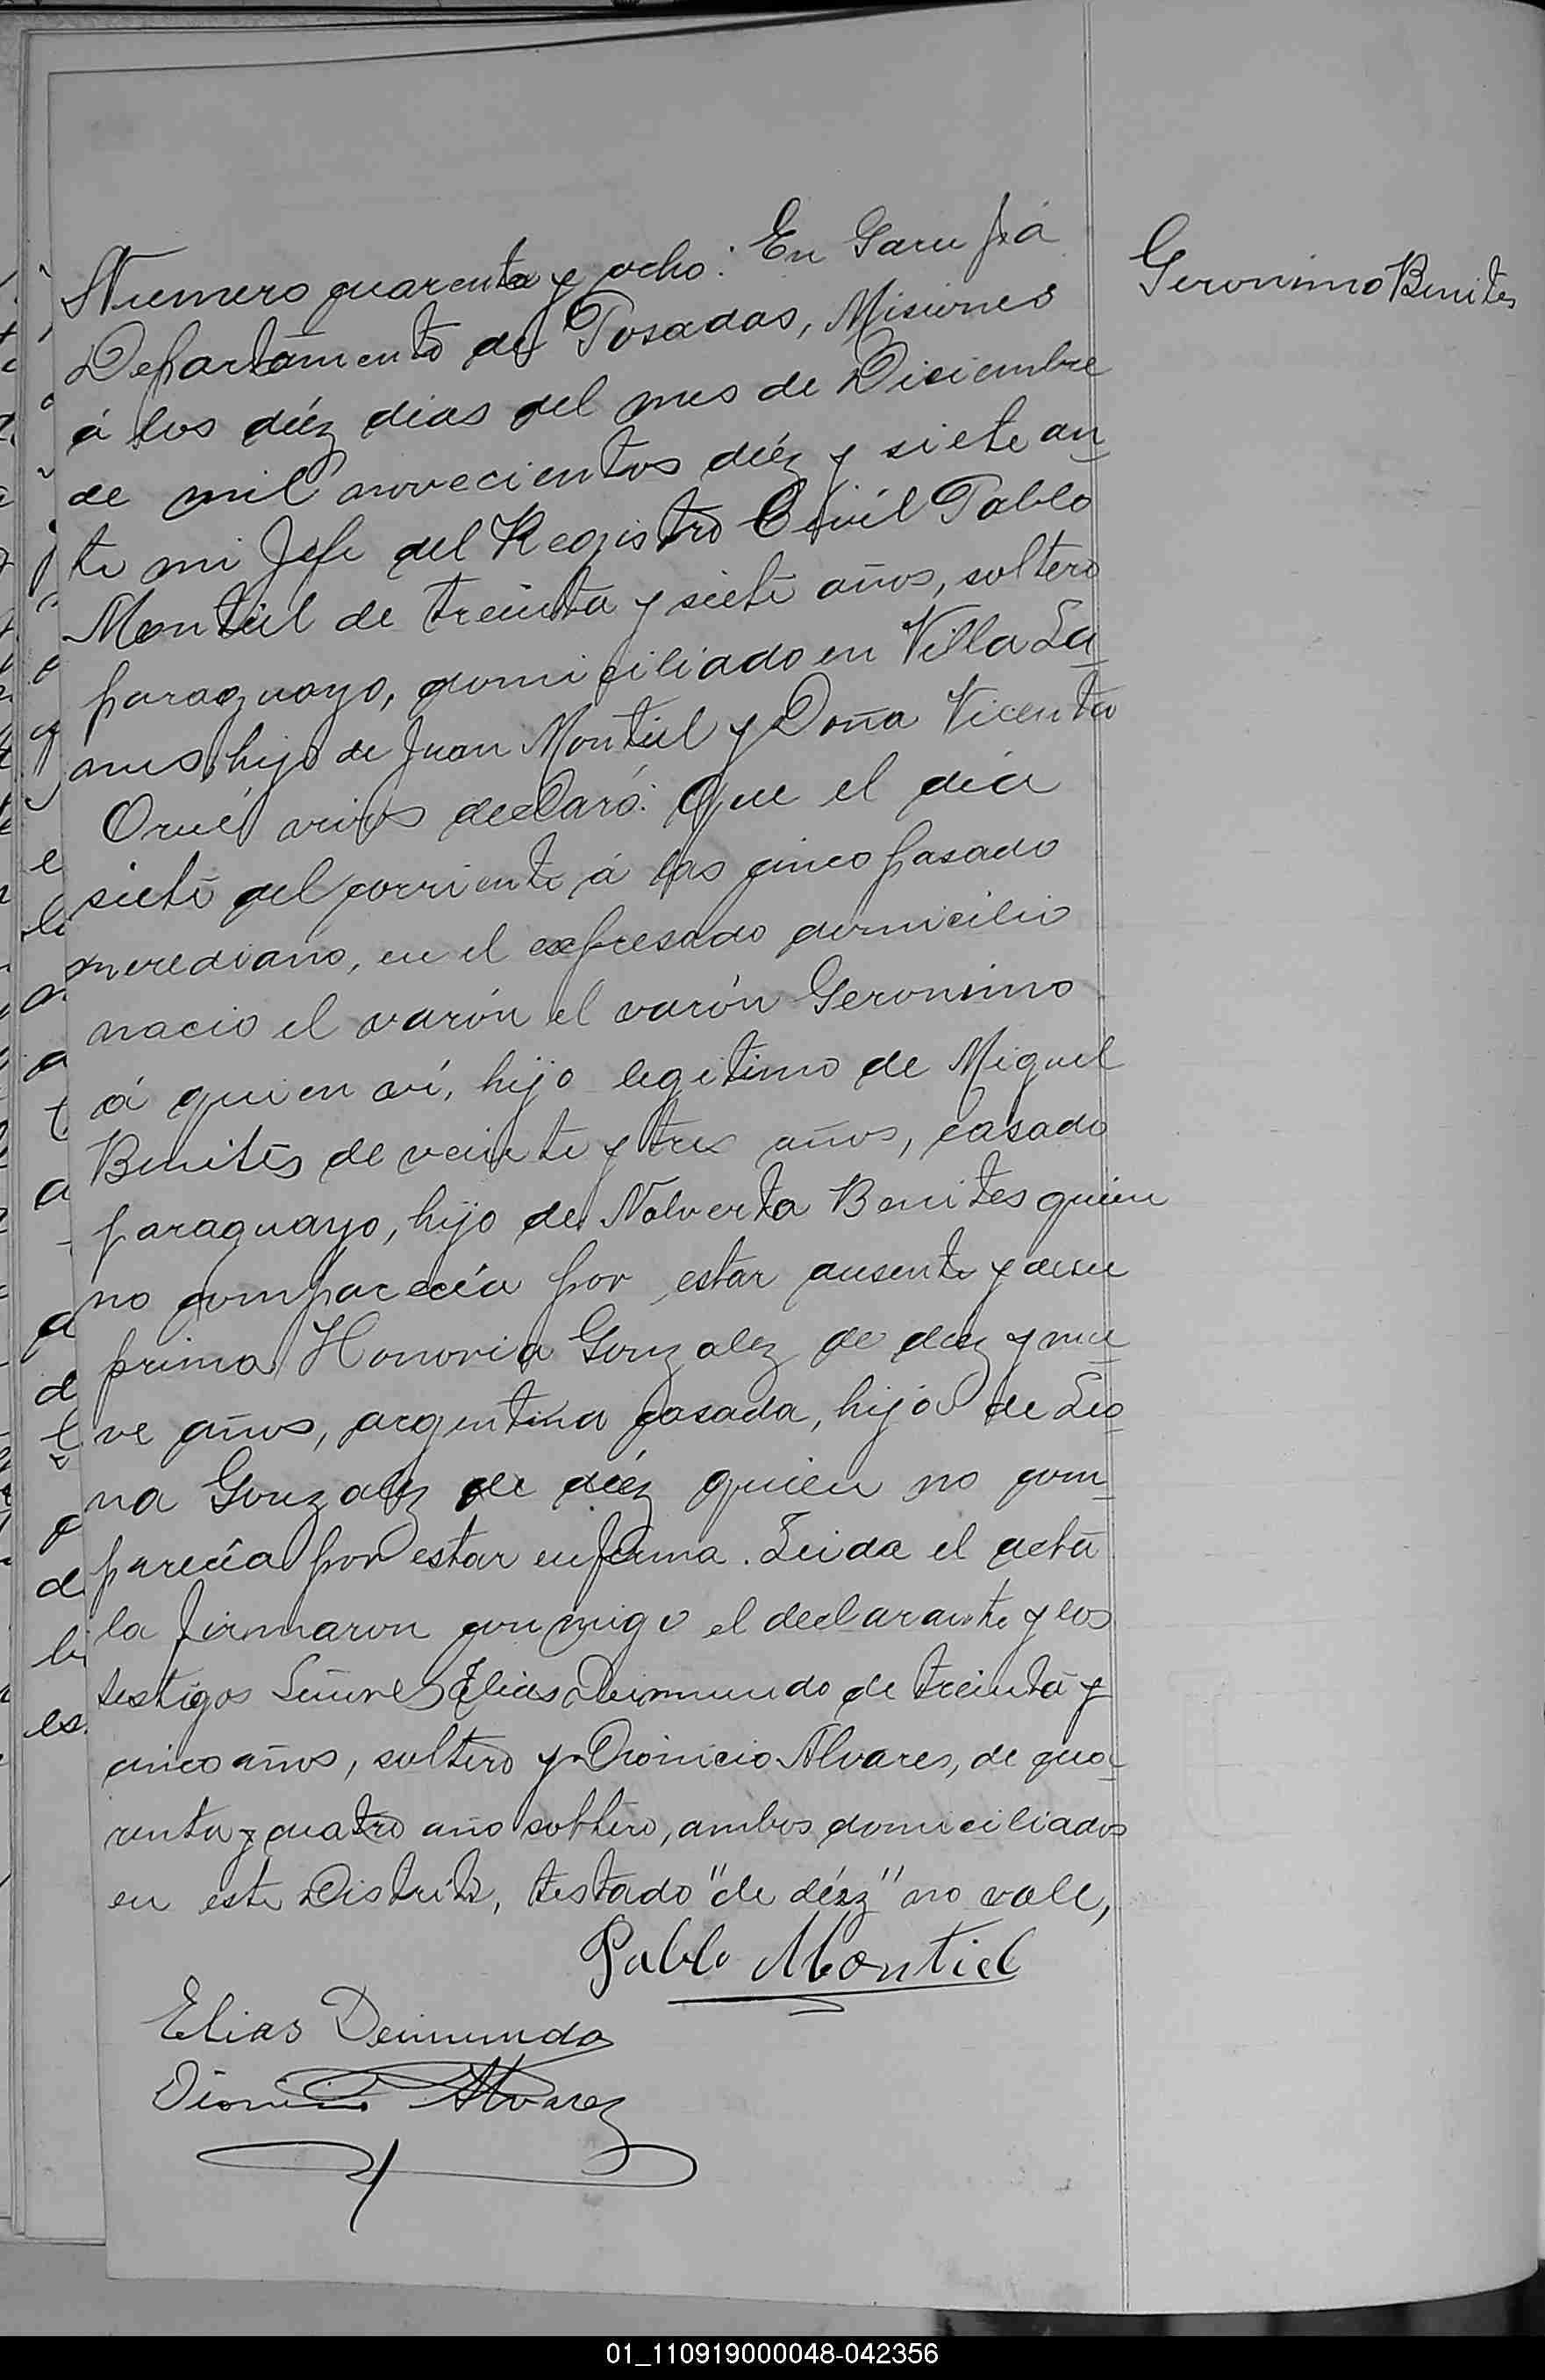 Geronimo Benites
Numero cuarenta y ocho: En Garupá
Departamento de Posadas, Misiones
á los diéz dias del mes de Diciembre
de mil novecientos diéz y siete an-
te mi Jefe del Registro Civil Pablo
Montiel de treinta y siete años, soltero
paraguayo, domiciliado en Villa La-
nus, hijo de Juan Montiel y Doña Vicenta
Orué vivos declaró: Que el dia
siete del corriente á las cinco pasado
merediano, en el expresado domicilio
nacio el varón el varón Geronimo
á quien ví, hijo legitimo de Miguel
Benites de veinte y tres años, casado
paraguayo, hijo de Nalverta Benites quien
no comparecia por estar ausente y de su
prima Honoria Gonzalez de diez y nue-
ve años, argentina casada, hija de Leo-
na Gonzalez de diéz quien no com-
parecia por estar enferma. Leida el acta
la firmaron conmigo el declarante y los
testigos Señores Elias Deimundo de treinta y
cinco años, soltero y Dionicio Alvares, de cua-
renta y cuatro año soltero, ambos domiciliados
en este Distrito, testado "de diéz" no vale,
Pablo Montiel
Elias Deimundo
Dionicio Alvarez
01_110919000048-042356